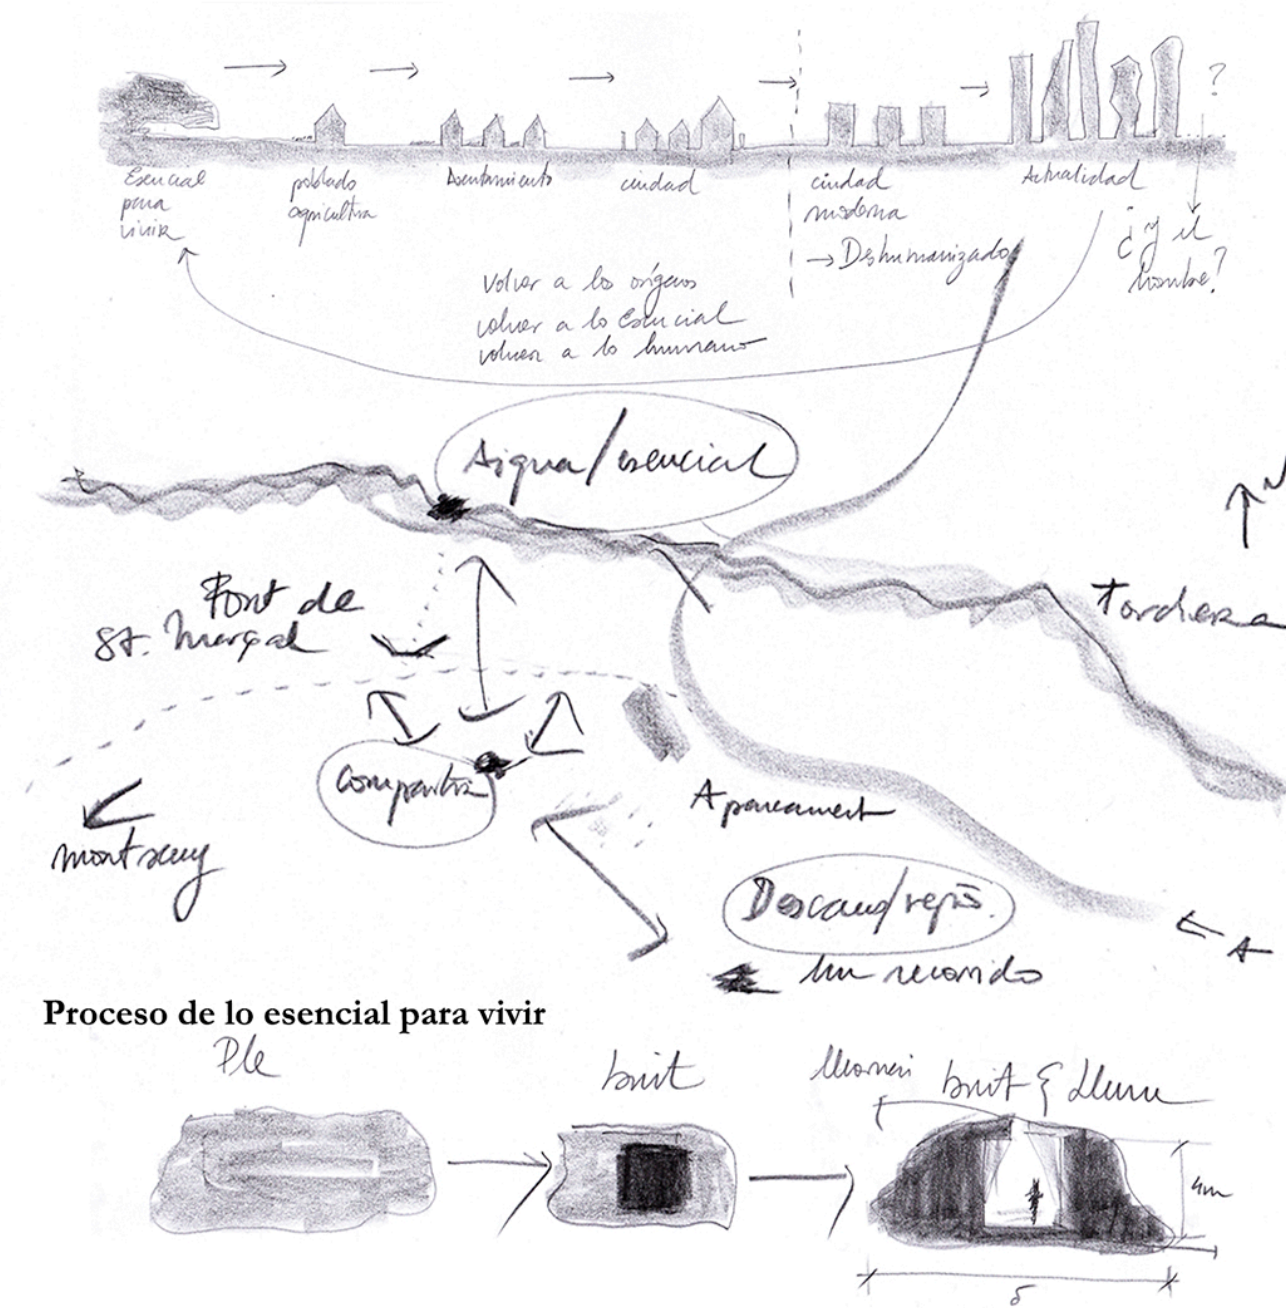 Esencial
para
vivir
poblado
agricultura
Asentamiento
ciudad
ciudad
moderna
→ Deshumanizado
Actualidad
?
¿y el
hombre?
Volver a los orígenes
volver a lo Esencial
volver a lo humano
Aigua/esencial
N
Font de
St. Marçal
Tordera
Compartir
Montseny
Aparcament
Descans/repòs.
un recorrido
A
Proceso de lo esencial para vivir
Ple
buit
buit & Llum
4m
5